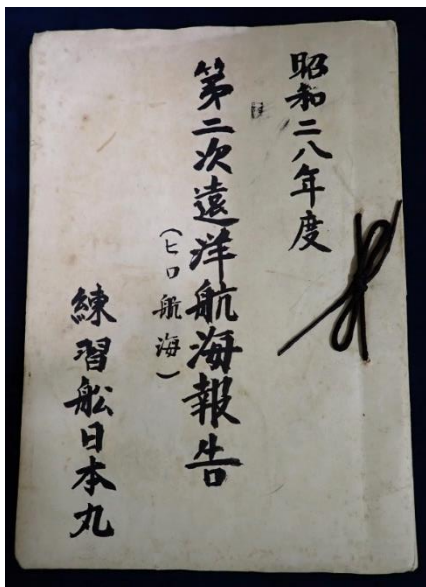 昭和二八年度
第二次遠洋航海報告
（ヒロ航海）
練習船日本丸